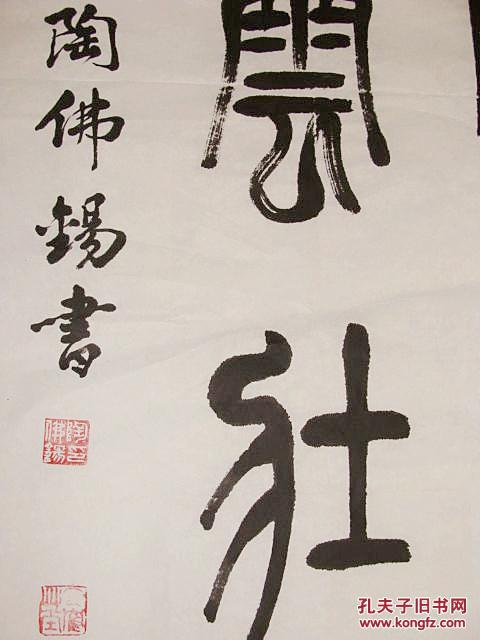 雲
陶佛錫書
陶印
佛錫
孔夫子旧书网
www.kongfz.com